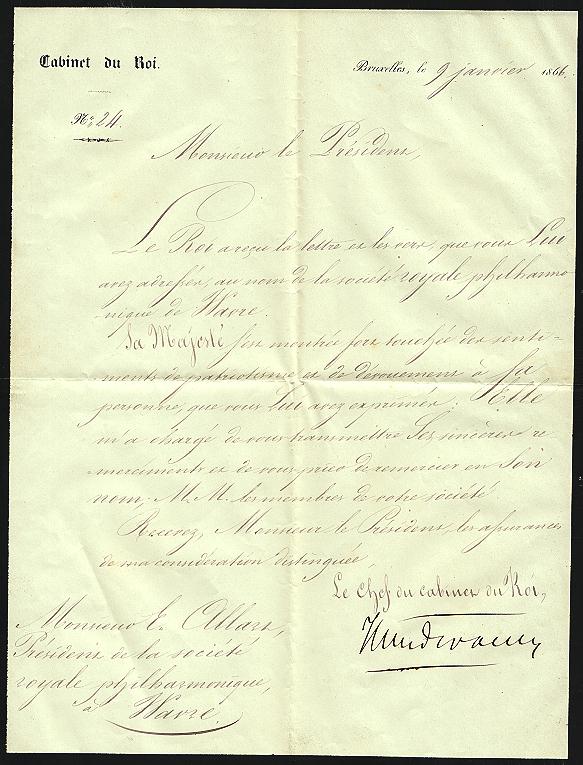 Cabinet du Roi.
Bruxelles, le 9 janvier 1866.
N° 24.
Monsieur le Président,
Le Roi a reçu la lettre et les vers, que vous Lui
avez adressés, au nom de la société royale philharmo-
nique de Wavre.
Sa Majesté s'est montrée fort touchée des senti-
ments de patriotisme et de dévouement à Sa
personne, que vous Lui avez exprimés. Elle
m'a chargé de vous transmettre Ses sincères re-
merciments et de vous prier de remercier en Son
nom, M.M. les membres de votre société.
Recevez, Monsieur le Président, les assurances
de ma considération distinguée,
Le chef du cabinet du Roi,
Monsieur E. Allart,
Président de la société
royale philharmonique,
à Wavre.